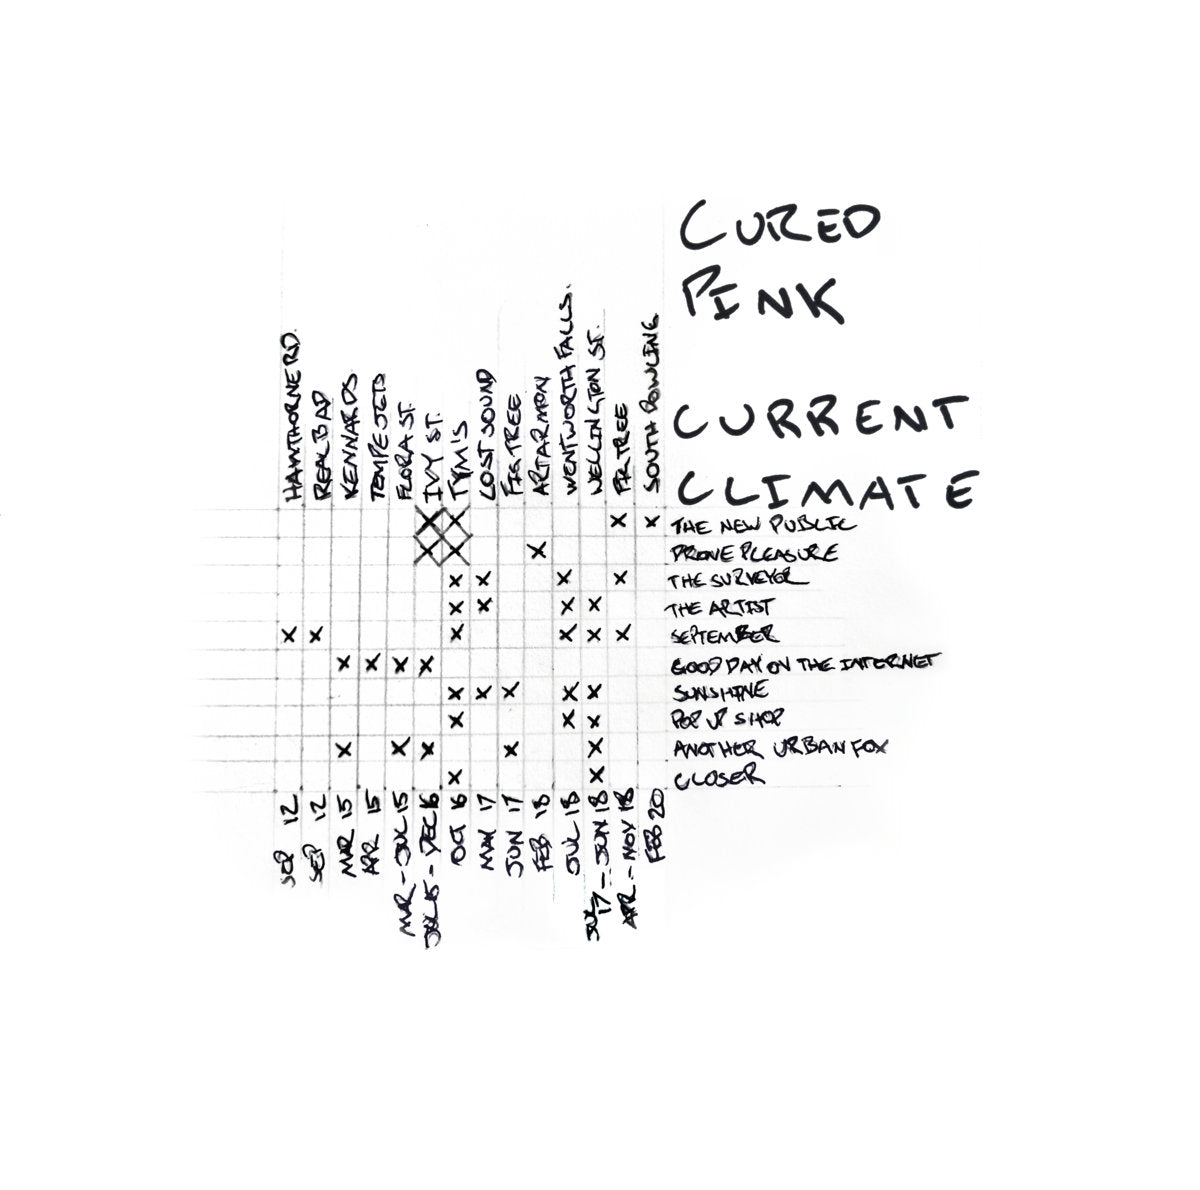 CURED
PINK
CURRENT
CLIMATE
HAWTHORNE RD.
REAL BAD
KENNARDS
TEMPE JETS
FLORA ST.
IVY ST.
TYM'S
LOST SOUND
FIG TREE
ARTARMON
WENTWORTH FALLS.
WELLINGTON ST.
FIG TREE
SOUTH BOWLING
X X X X THE NEW PUBLIC
X X X DRONE PLEASURE
X X X X THE SURVEYOR
X X X X THE ARTIST
X X X X X X SEPTEMBER
X X X X GOOD DAY ON THE INTERNET
X X X X X SUNSHINE
X X X POP UP SHOP
X X X X X ANOTHER URBAN FOX
X X CLOSER
SEP 12
SEP 12
MAR 15
APR 15
MAR - JUL 15
JUL 15 - DEC 16
OCT 16
MAY 17
JUN 17
FEB 18
JUL 18
JUL 17 - JUN 18
APR - NOV 18
FEB 20